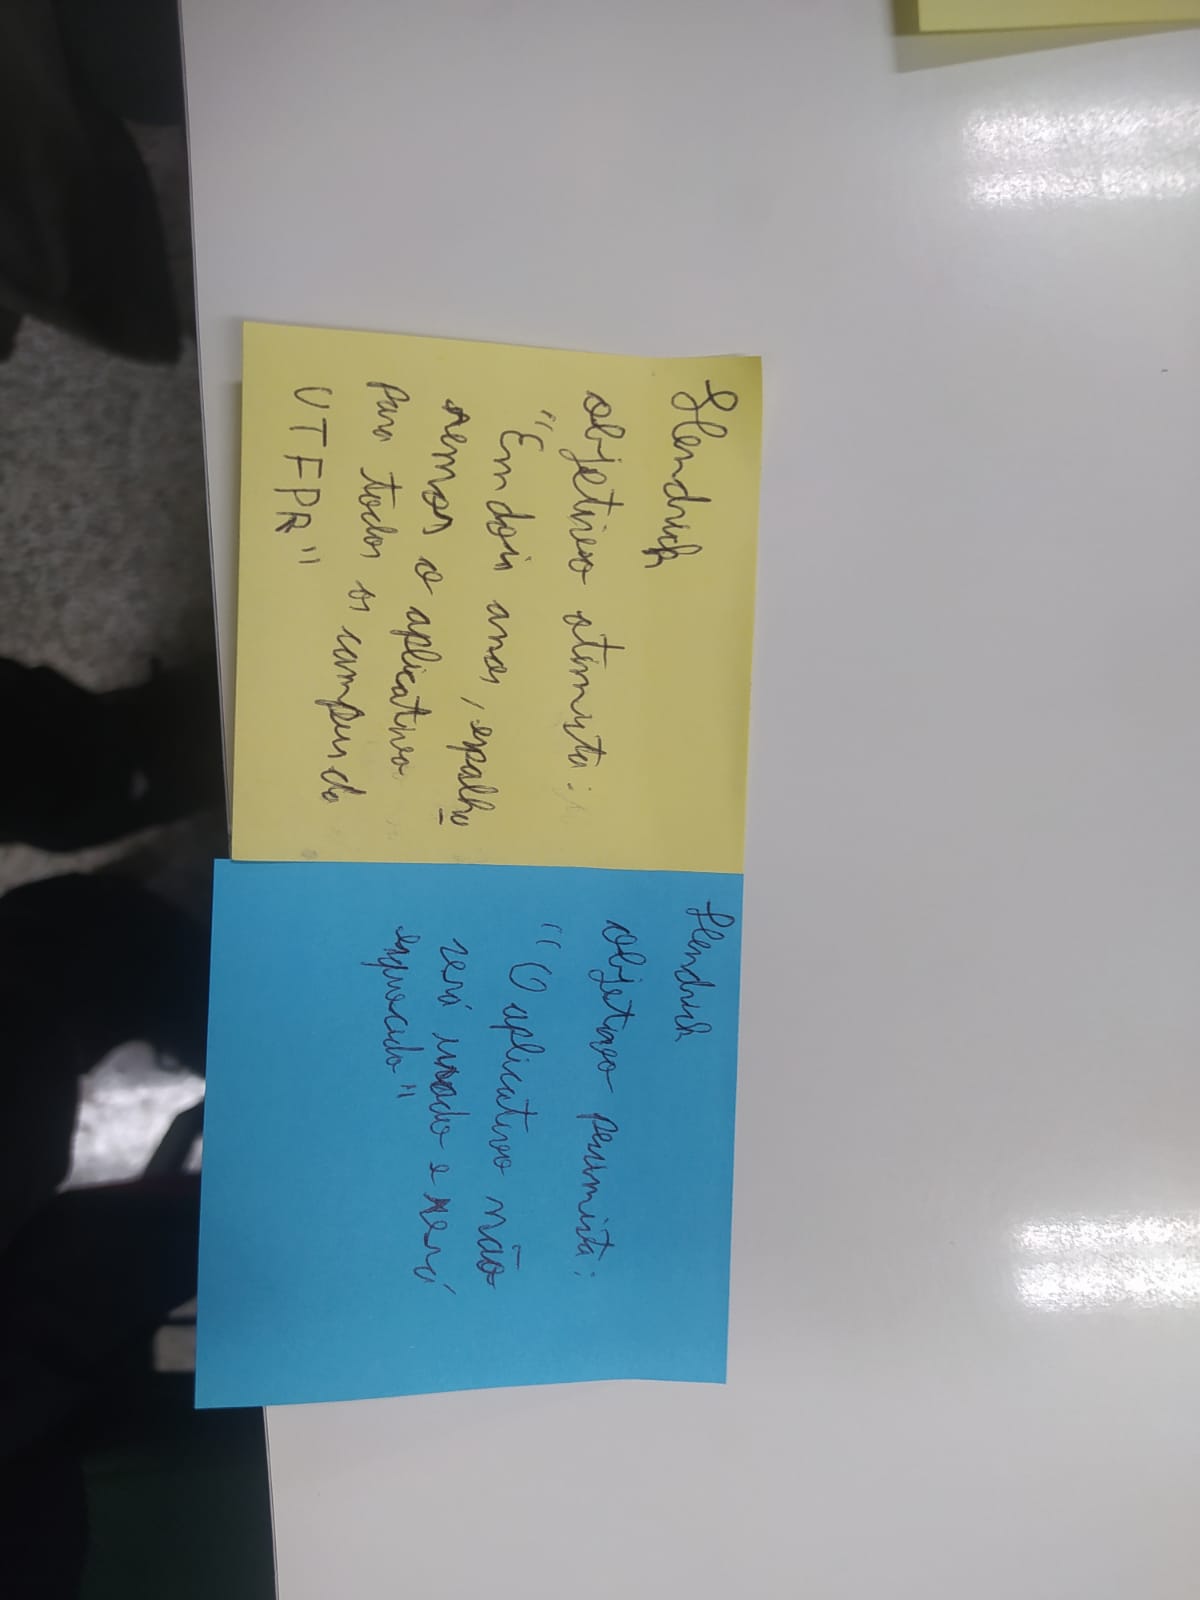 Hendrich
objetivo otimista:
"Em dois anos, espalha
remos o aplicativo
Para todos os campus da
UTFPR"
Hendrich
objetivo pessimista:
"O aplicativo não
será usado e será
esquecido"